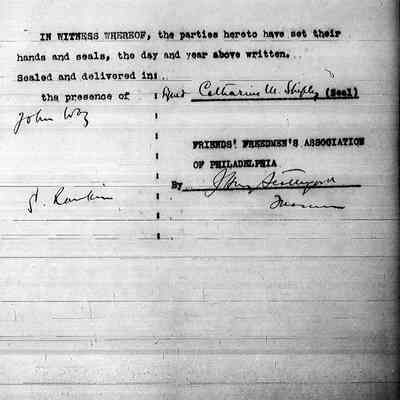 IN WITNESS WHEREOF, the parties hereto have set their
hands and seals, the day and year above written.
Sealed and delivered in:
the presence of : Catharine M. Shipley (Seal)
John Way
FRIENDS' FREEDMEN'S ASSOCIATION
OF PHILADELPHIA
By
Rankin